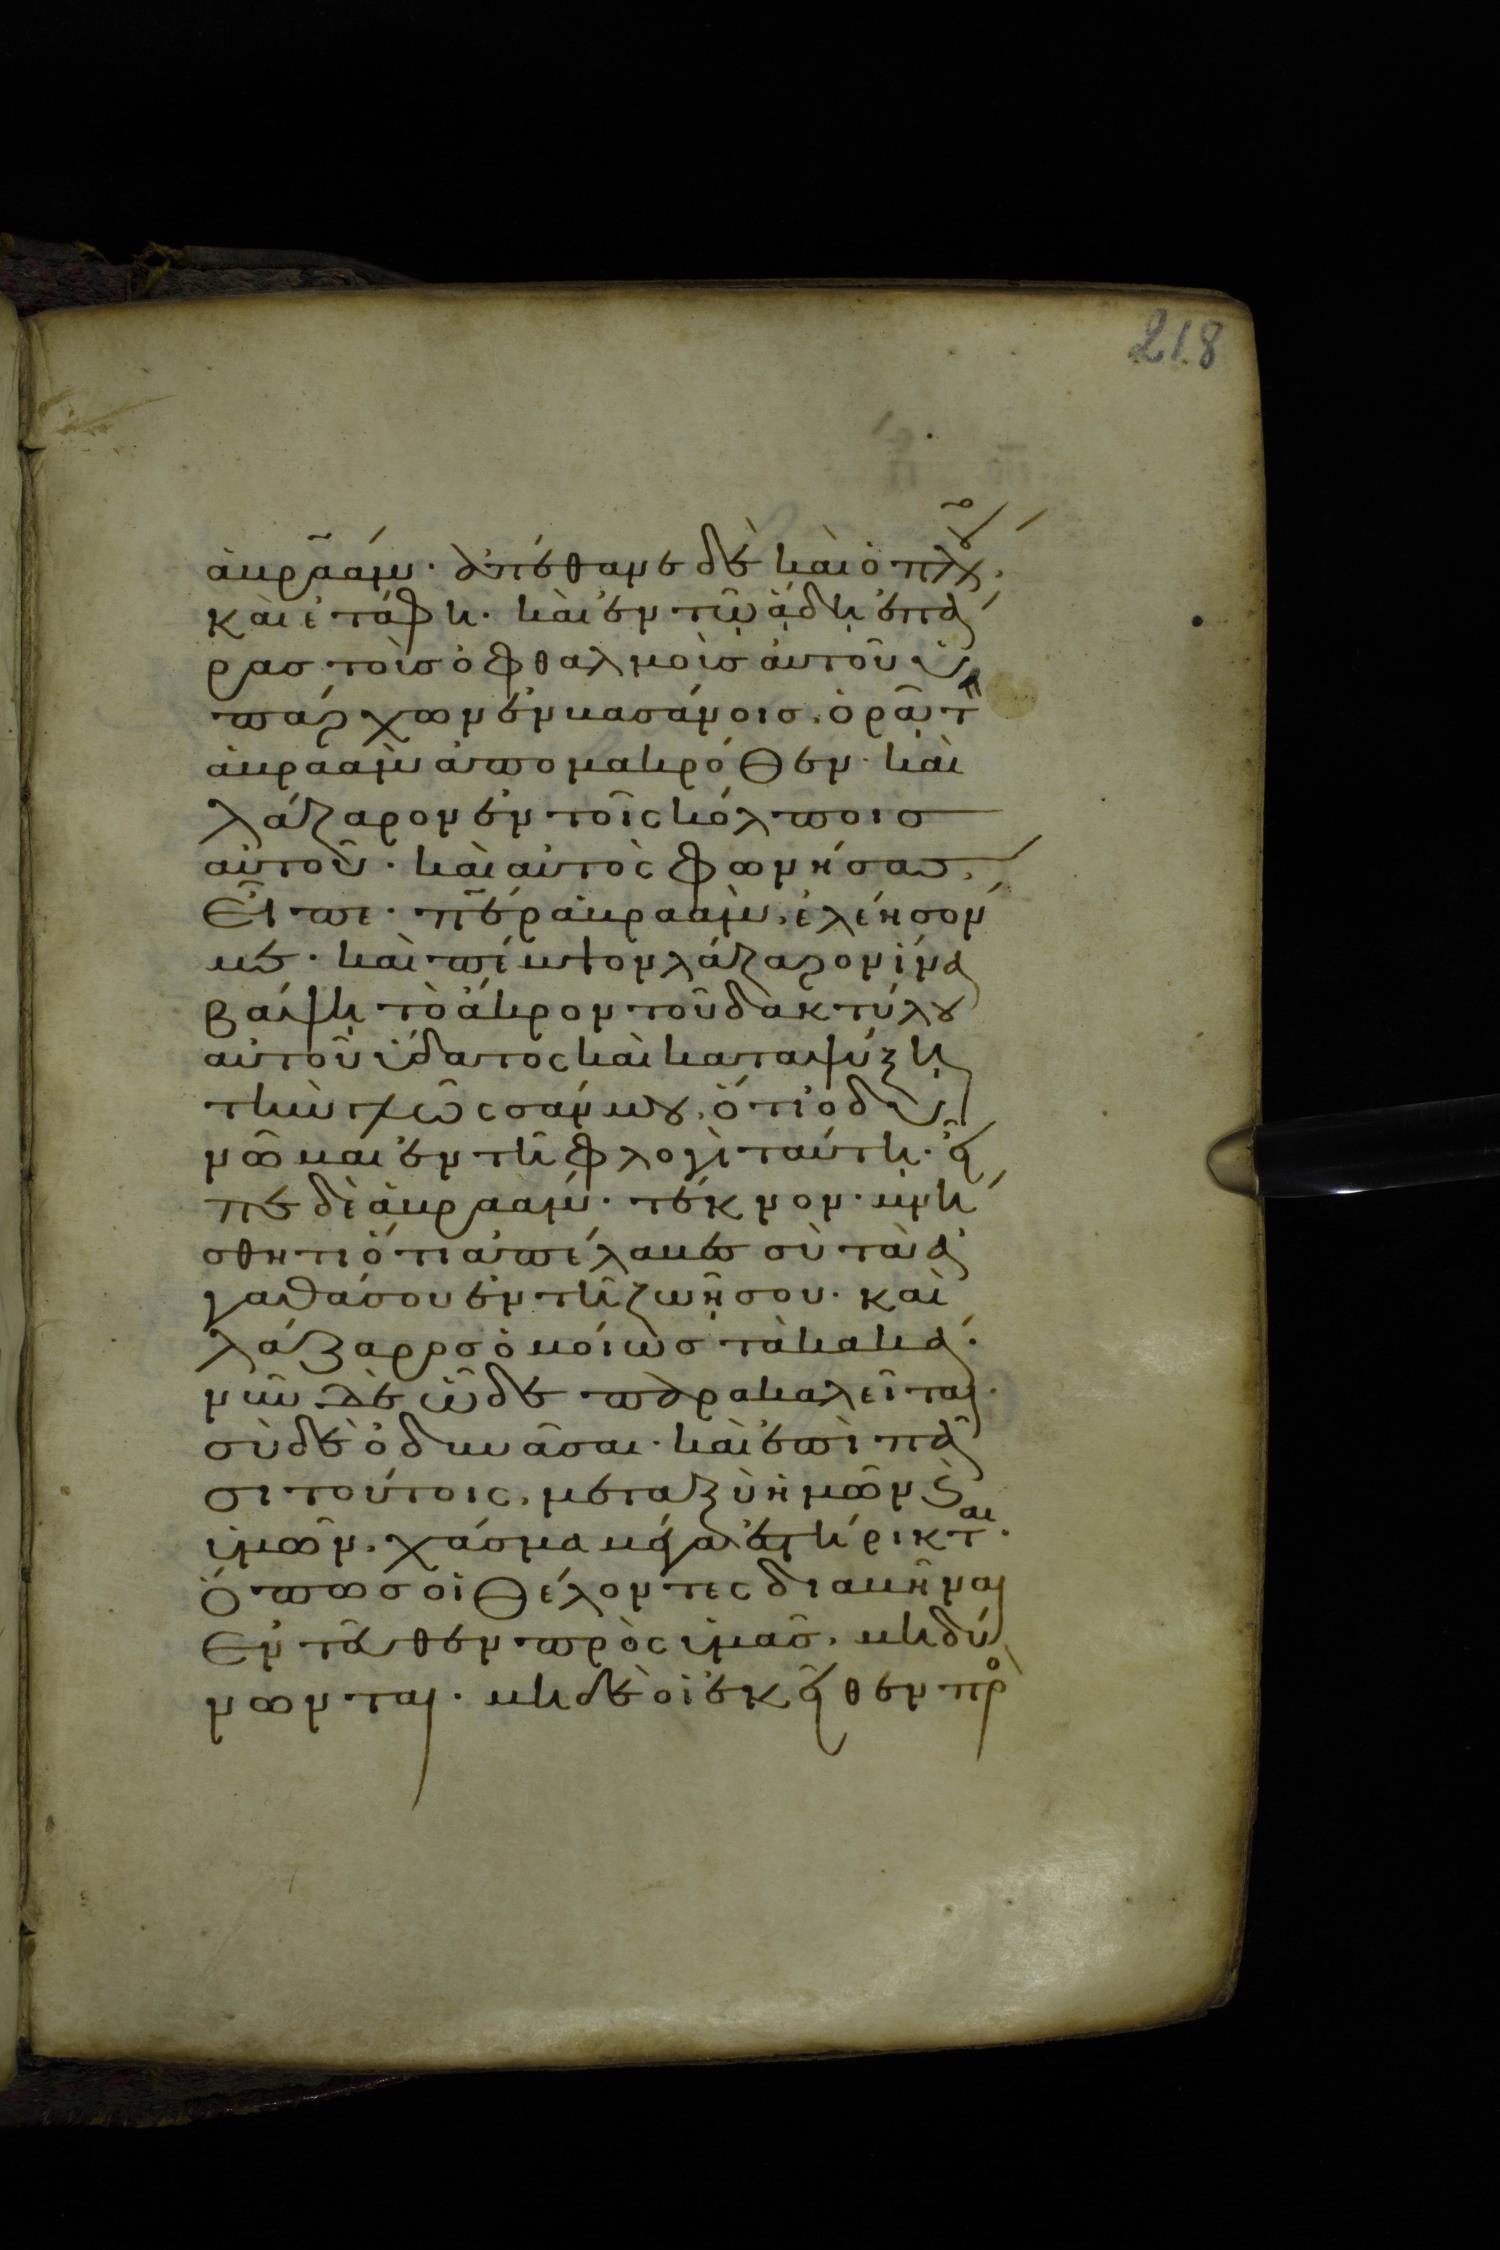 218
ἀβρᾶάμ· ἀπέθανε δὲ καὶ ὁ πλȣ́
καὶ ἐτάφη· καὶ ἐν τῶ ἅδῃ ἐπά
ρας τοὶς ὀφθαλμοὶς ἀυτοῦ ὑ
πάρχων ἐν βασάνοις, ὁρᾶ τ
ἀβρααμ ἀπο μακρόθεν· καὶ
λάζαρον ἐν τοῖς κόλποις
αὐτοῦ· καὶ αὐτὸς φωνήσας,
Εἶπε· πε͂ρ ἀβρααμ, ἐλέησον
με· καὶ πέμψον λάζαρον ἵνα
βάψῃ τὸ ἄκρον τοῦ δακτύλȣ
αὐτοῦ ὕδατος καὶ καταψύξῃ
τὴν γλῶσσάν μȣ, ὅτι ὀδυ
νῶμαι ἐν τῆ φλογὶ ταύτῃ· εἶ
πε δὲ ἀβρααμ· τέκνον· μνή
σθητι ὅτι ἀπέλαβες σὺ τὰ ἀ
γαθά σου ἐν τῆ ζωῇ σου· καὶ
λάζαρος ὁμοίως τὰ κακά·
νῦν δὲ ὧδε παρακαλεῖται·
σὺ δὲ ὀδυνᾶσαι· καὶ ἐπὶ πᾶ
σι τούτοις, μεταξὺ ἡμῶν ϗ
ὑμῶν, χάσμα μέγα ἐστήρικται·
Ὅπως οἱ θέλοντες διαβῆναι
Ἐντεῦθεν πρὸς ὑμᾶς, μὴ δύ
νωνται· μὴ δὲ οἱ ἐκεῖθεν πρὸ